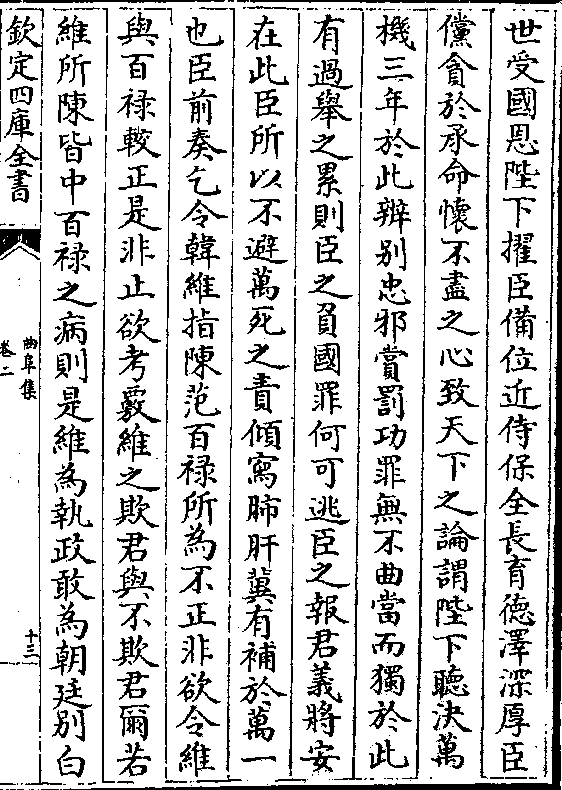 世受國恩陛下擢臣備位近侍保全長育徳澤深厚臣
儻貪於承命懷不盡之心致天下之論謂陛下聽決萬
機三年於此辨别忠邪賞罰功罪無不曲當而獨於此
有過舉之累則臣之負國罪何可逃臣之報君義將安
在此臣所以不避萬死之責傾寫肺肝冀有補於萬一
也臣前奏乞令韓維指陳范百禄所為不正非欲令維
與百禄較正是非止欲考覈維之欺君與不欺君爾若
維所陳皆中百禄之病則是維為執政敢為朝廷别白
欽定四庫全書
曲阜集
卷二
十三